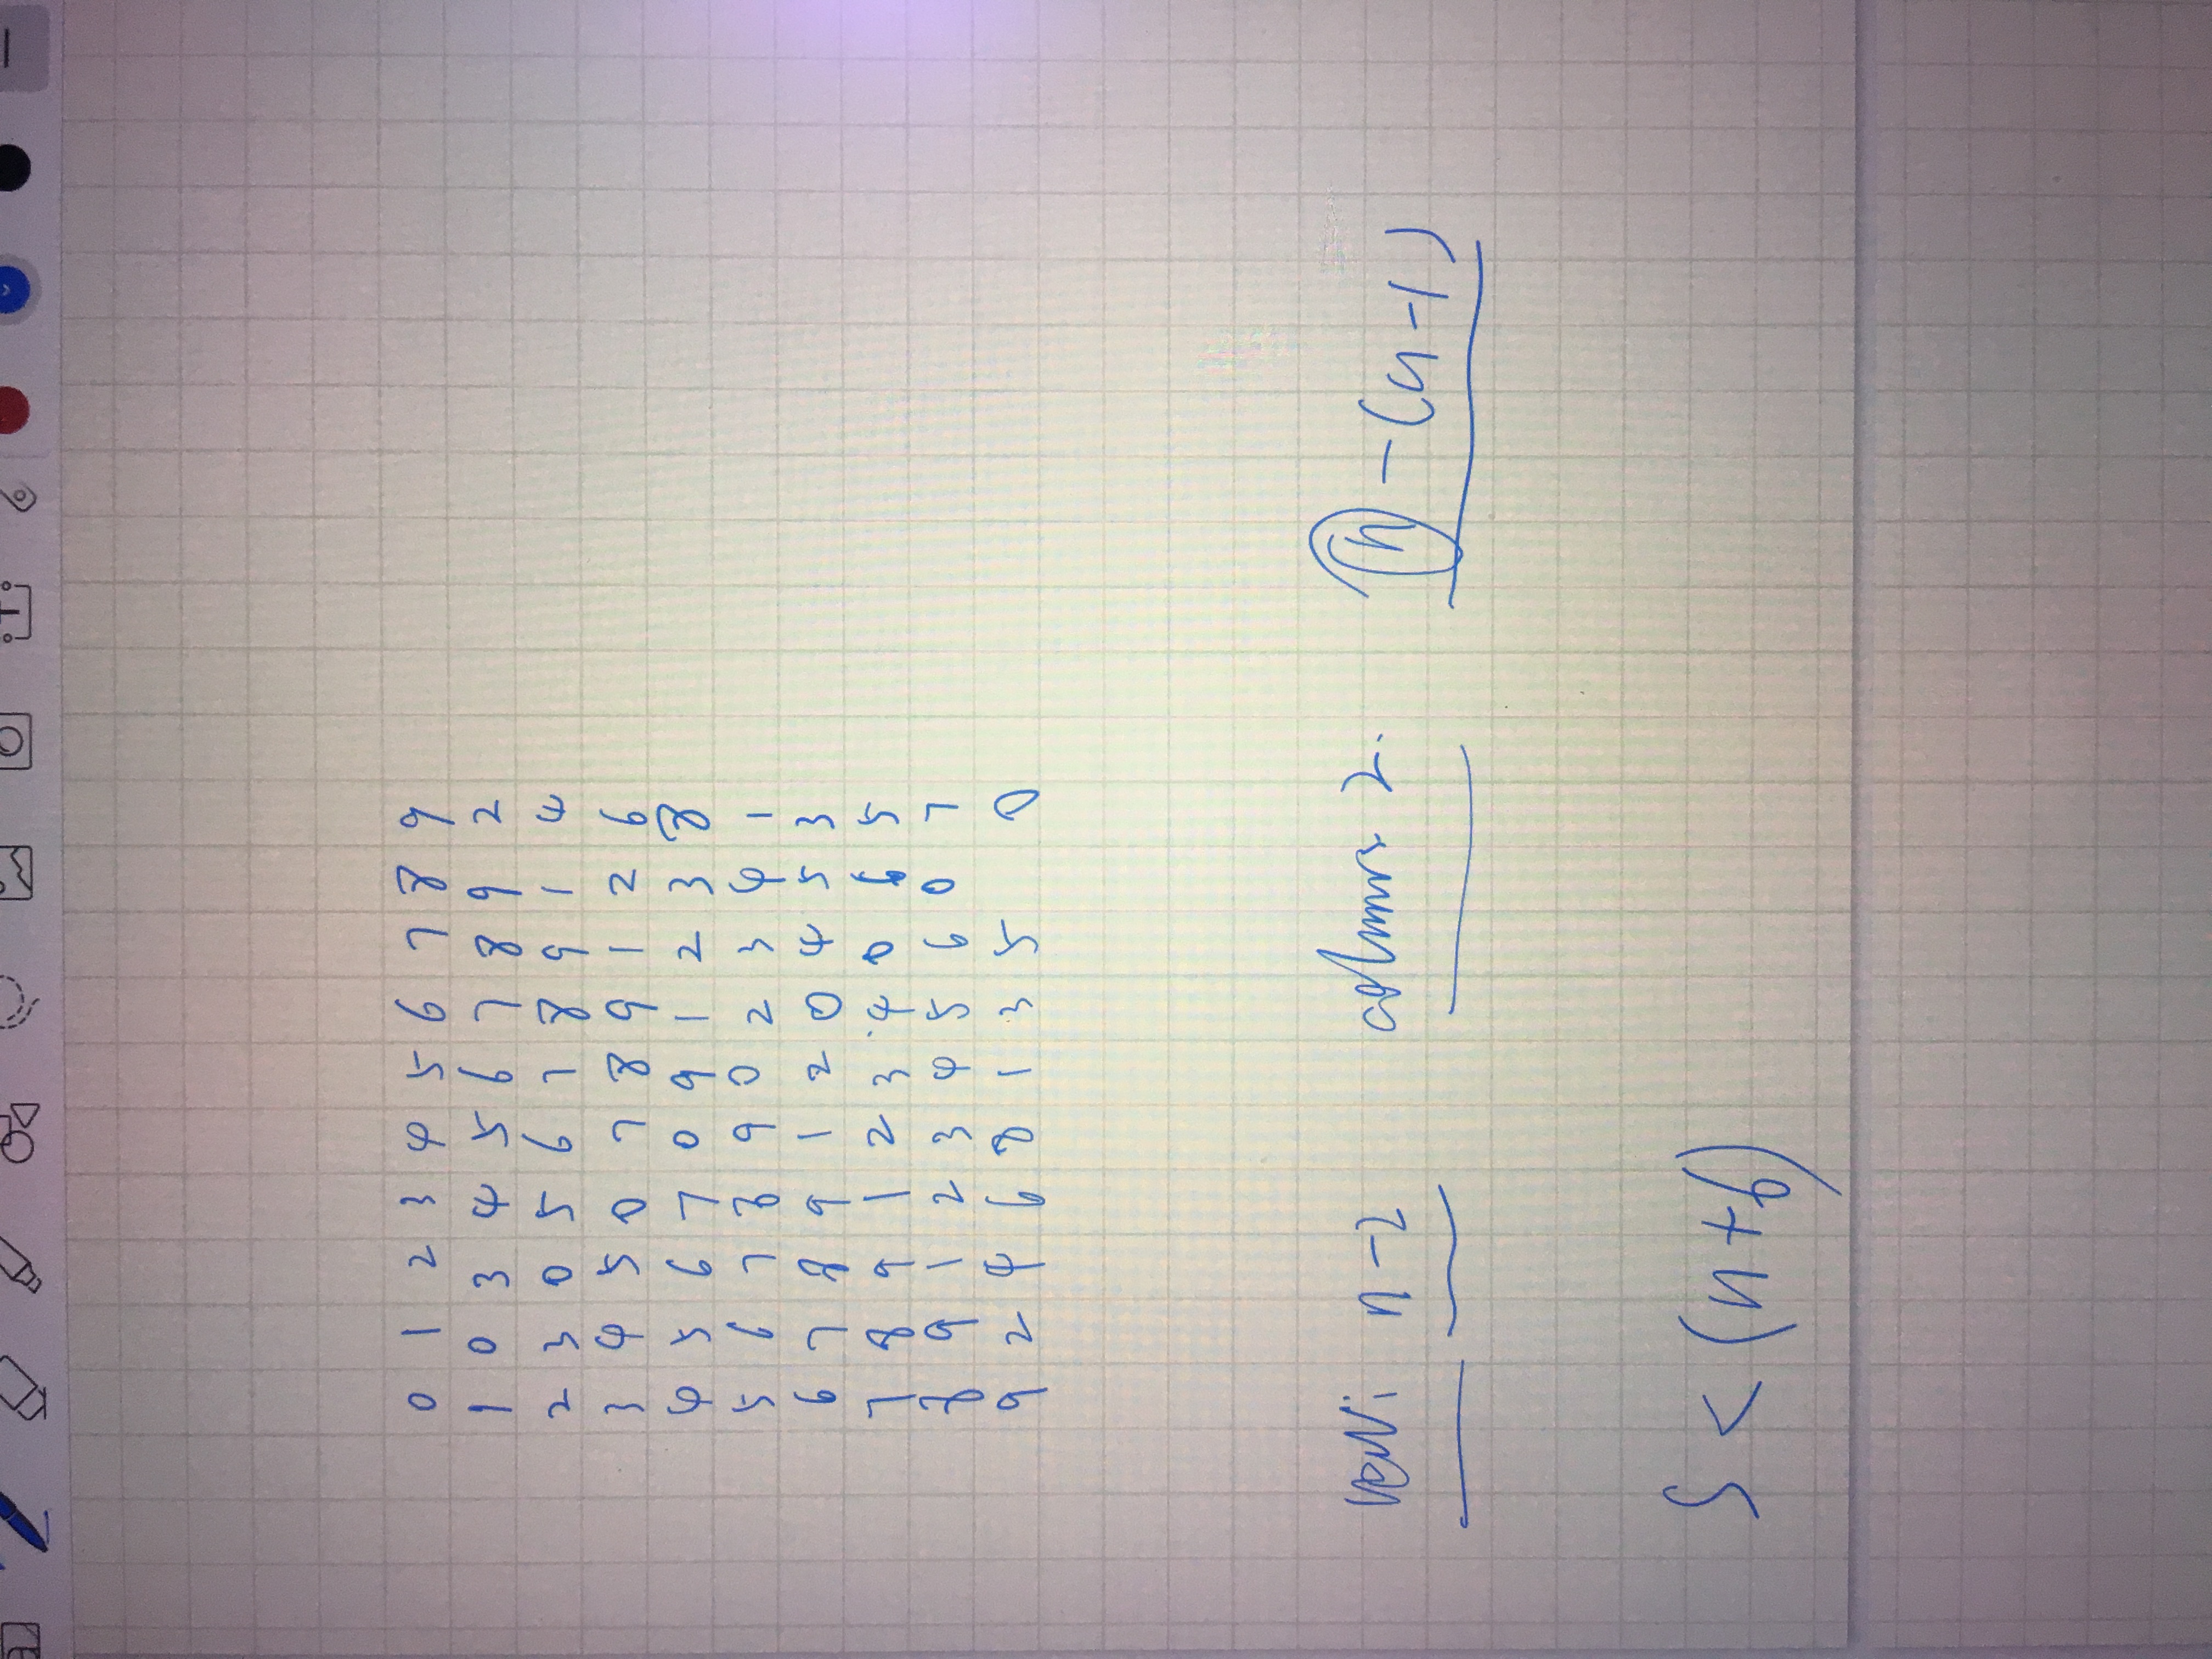 0 1 2 3 4 5 6 7 8 9
1 0 3 4 5 6 7 8 9 2
2 3 0 5 6 7 8 9 1 4
3 4 5 0 7 8 9 1 2 6
4 5 6 7 0 9 1 2 3 8
5 6 7 8 9 0 2 3 4 1
6 7 8 9 1 2 0 4 5 3
7 8 9 1 2 3 4 0 6 5
8 9 1 2 3 4 5 6 0 7
9 2 4 6 8 1 3 5 0
n-2 column 2. n - (n-1)
< (n+